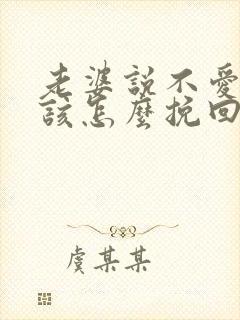 老婆説不愛
該怎麼挽回
虞某某